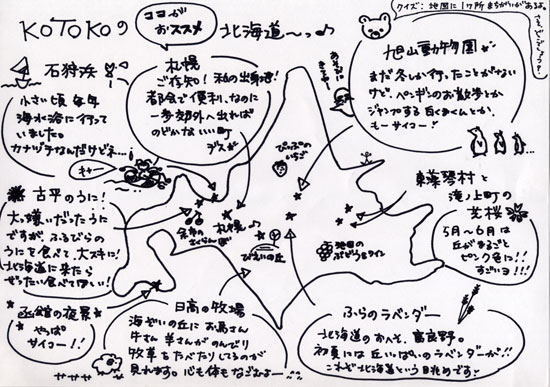 KOTOKoの
ココが
おススメ
北海道〜っ♪
クイズ:地図に1ヶ所まちがいがあるよ。
さて、どこでしょう?
石狩浜
小さい頃 毎年
海水浴に行って
いました。
カナヅチなんだけどネ…!
キャー
札幌
ご存知! 私の出身地!
都会で便利、なのに
一歩郊外へ出れば
のどかない い町
デスよ
旭山動物園
まだ冬しか行ったことがない
けど、ペンギンのお散歩とか
ジャンプする白くまくんとか、
もーサイコー!
ぴっぷの
いちご
東藻琴村と
滝ノ上町の
芝桜
5月〜6月は
丘がまるごと
ピンク色に!!
すごいヨ!!!
古平のうに!
大っ嫌いだったうに
ですが、ふるびらの
うにを食べて、大スキに!
北海道に来たら
ぜったい食べてほしい!
余市の
さくらんぼ
札幌♪
びえいの丘
池田の
ぶどう&ワイン
函館の夜景
やっぱ
サイコー!!
日高の牧場
海ぞいの丘にお馬さん
牛さん 羊さんがのんびり
牧草をたべたりしてるのが
見れます。心も体もなごむよー
ふらのラベンダー
北海道のおへそ、富良野。
初夏には丘いっぱいのラベンダーが!!
これぞ北海道という眺めです!